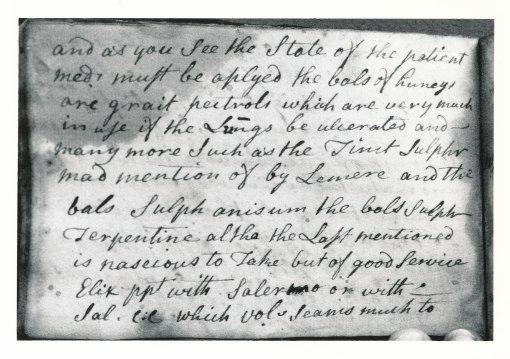 and as you See the State of the patient
meds must be aplyed the bals of huneys
are grait pectrols which are very much
in use if the Lungs be ulcerated and
many more Such as the Tinct Sulphr
mad mention of by Lemere and the
bals Sulph anisum the bals Sulph
Terpentine altho the Last mentioned
is naseious to Take but of good Service
Elix ppt with or with
Sal. which vols Seams much to